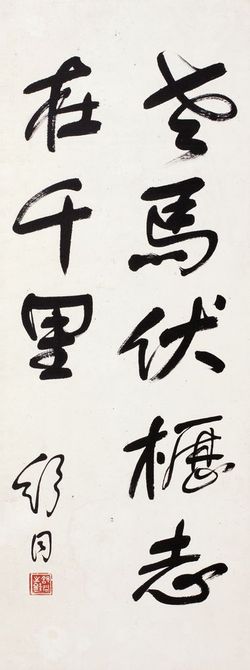 老馬伏櫪志
在千里
舒同